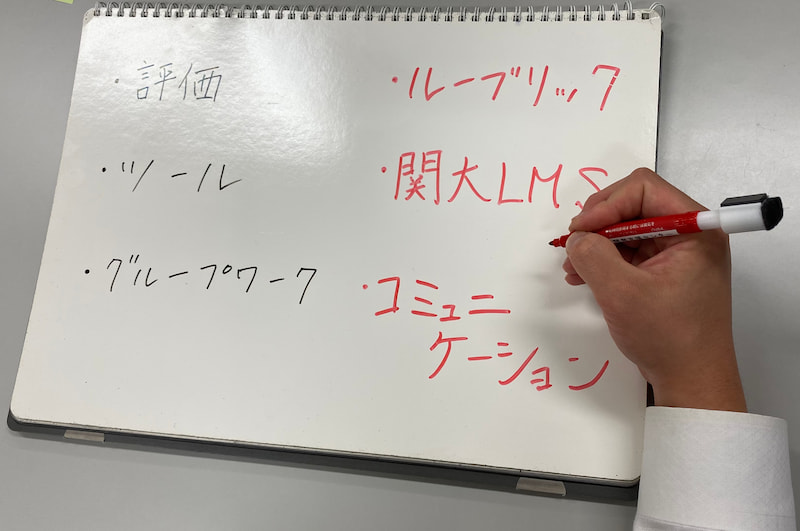 ・評価
・ツール
・グループワーク
・ルーブリック
・関大LMS
・コミュニ
ケーション